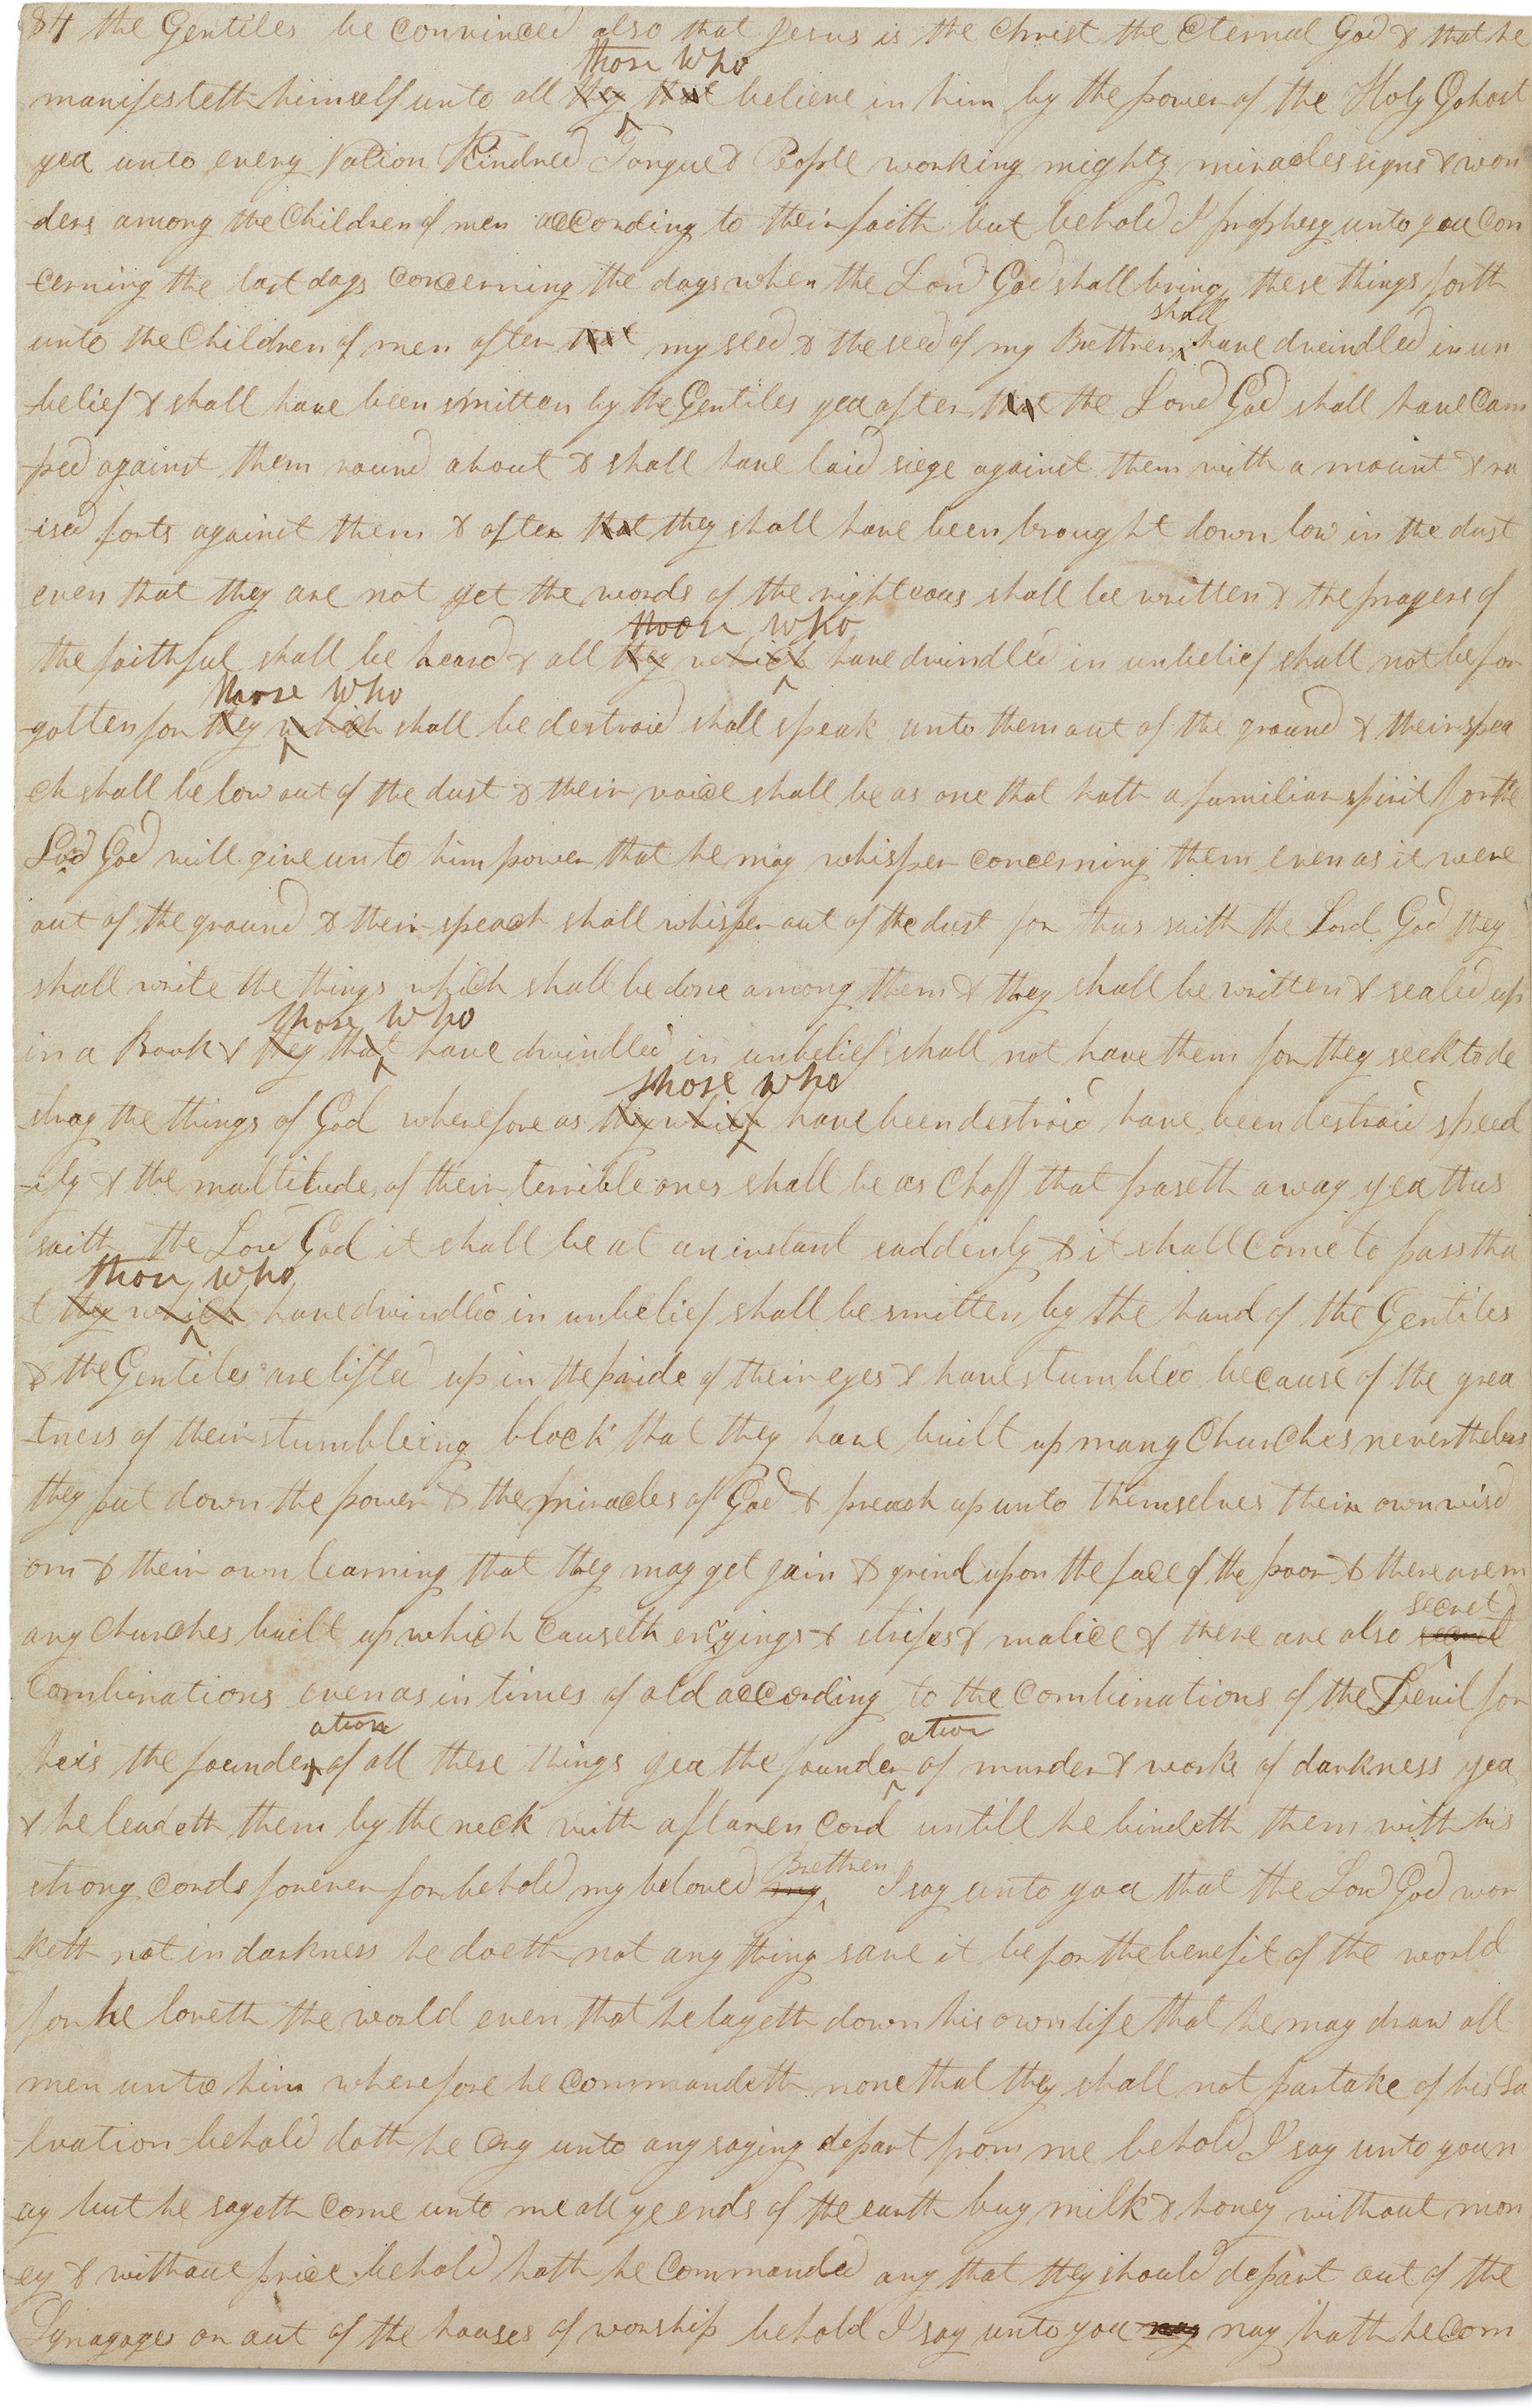 84 the Gentiles be convinced also that Jesus is the Christ the Eternal God & that he
those who
manifesteth himself unto all they that believe in him by the power of the Holy Gohost
yea unto every Nation Kindred Tongue & People working mighty miracles signs & won
ders among the Children of men according to their faith but behold I prophesy unto you con
cerning the last days concerning the days when the Lord God shall bring these things forth
shall
unto the Children of men after that my seed & the seed of my Brethren have dwindled in un
-belief & shall have been smitten by the Gentiles yea after that the Lord God shall have cam
ped against them round about & shall have laid siege against them with a mount & ra
ised forts against them & after that they shall have been brought down low in the dust
even that they are not yet the words of the righteous shall be written & the prayers of
those who
the faithful shall be heard & all they which have dwindled in unbelief shall not be for
those who
gotten for they which shall be destroid shall speak unto them out of the ground & their spea
ch shall be low out of the dust & their voice shall be as one that hath a familiar spirit for the
Lord God will give unto him power that he may whisper concerning them even as it were
out of the ground & their speach shall whisper out of the dust for thus saith the Lord God they
shall write the things which shall be done among them & they shall be written & sealed up
those who
in a Book & they that have dwindled in unbelief shall not have them for they seek to de
those who
stroy the things of God wherefore as they which have been destroid have been destroid speed
-ily & the multitude of their terrible ones shall be as Chaff that paseth away yea thus
saith the Lord God it shall be at an instant suddenly & it shall come to pass tha
those who
t they which have dwindled in unbelief shall be smitten by the hand of the Gentiles
& the Gentiles are lifted up in the pride of their eyes & have stumbled because of the grea
-tness of their stumbleing block that they have built up many Churches nevertheless
they put down the power & the miracles of God & preach up unto themselves their own wisd
om & their own learning that they may get gain & grind upon the face of the poor & there are m
secret
any churches built up which causeth envyings & strifes & malice & there are also
combinations even as in times of old according to the combinations of the Devil for
ation ation
he is the founder of all these things yea the founder of murder & works of darkness yea
& he leadeth them by the neck with a flaxen cord untill he bindeth them with his
Brethren
strong cords forever for behold my beloved my I say unto you that the Lord God wor
keth not in darkness he doeth not any thing save it be for the benefit of the world
for he loveth the world even that he layeth down his own life that he may draw all
men unto him wherefore he commandeth none that they shall not partake of his Sa
-lvation behold doth he cry unto any saying depart from me behold I say unto you n
ay but he sayeth come unto me all ye ends of the earth buy milk & honey without mon
ey & without price behold hath he commanded any that they should depart out of the
Synagoges or out of the houses of worship behold I say unto you nay nay hath he com